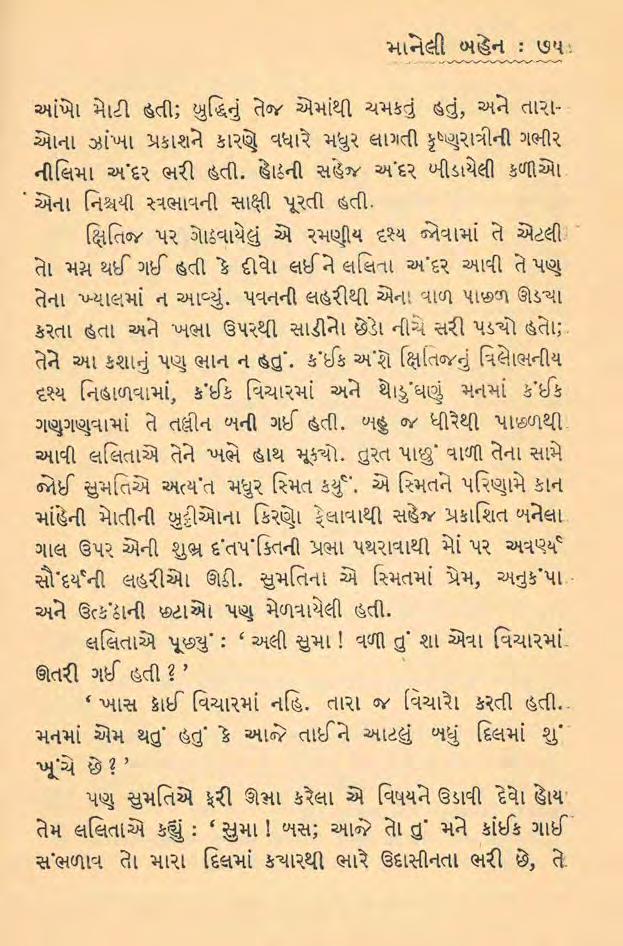 માનેલી બહેન : ૭૫
આંખો મોટી હતી; બુદ્ધિનું તેજ એમાંથી ચમકતું હતું, અને તારા-
ઓના ઝાંખા પ્રકાશને કારણે વધારે મધુર લાગતી કૃષ્ણરાત્રીની ગભીર
નીલિમા અંદર ભરી હતી. હોઠની સહેજ અંદર બીડાયેલી કળીઓ
એના નિશ્ચયી સ્વભાવની સાક્ષી પૂરતી હતી.
ક્ષિતિજ પર ગોઠવાયેલું એ રમણીય દૃશ્ય જોવામાં તે એટલી
તો મગ્ન થઈ ગઈ હતી કે દીવો લઈને લલિતા અંદર આવી તે પણ
તેના ખ્યાલમાં ન આવ્યું. પવનની લહરીથી એના વાળ પાછળ ઊડ્યા
કરતા હતા અને ખભા ઉપરથી સાડીનો છેડો નીચે સરી પડ્યો હતો;
તેને આ કશાનું પણ ભાન ન હતું. કંઈક અંશે ક્ષિતિજનું વિલોભનીય
દૃશ્ય નિહાળવામાં, કંઈક વિચારમાં અને થોડુંઘણું મનમાં કંઈક
ગણગણવામાં તે તલ્લીન બની ગઈ હતી. બહુ જ ધીરેથી પાછળથી
આવી લલિતાએ તેને ખભે હાથ મૂક્યો. તુરત પાછું વાળી તેના સામે
જોઈ સુમતિએ અત્યંત મધુર સ્મિત કર્યું. એ સ્મિતને પરિણામે કાન
માંહેની મોતીની બુટ્ટીઓના કિરણો ફેલાવાથી સહેજ પ્રકાશિત બનેલા
ગાલ ઉપર એની શુભ્ર દંતપંક્તિની પ્રભા પથરાવાથી મોં પર અવર્ણ્ય
સૌંદર્યની લહરીઓ ઊઠી. સુમતિના એ સ્મિતમાં પ્રેમ, અનુકંપા
અને ઉત્કંઠાની છટાઓ પણ મેળવાયેલી હતી.
લલિતાએ પૂછ્યું : ‘ અલી સુમા ! વળી તું શા એવા વિચારમાં
ઊતરી ગઈ હતી ? ’
‘ ખાસ કોઈ વિચારમાં નહિ. તારા જ વિચારો કરતી હતી.
મનમાં એમ થતું હતું કે આજે તાઈને આટલું બધું દિલમાં શું
ખૂંચે છે ? ’
પણ સુમતિએ ફરી ઊભા કરેલા એ વિષયને ઉડાવી દેવો હોય
તેમ લલિતાએ કહ્યું : ‘ સુમા ! બસ; આજે તો તું મને કાંઈક ગાઈ
સંભળાવ તો મારા દિલમાં ક્યારથી ભારે ઉદાસીનતા ભરી છે, તે